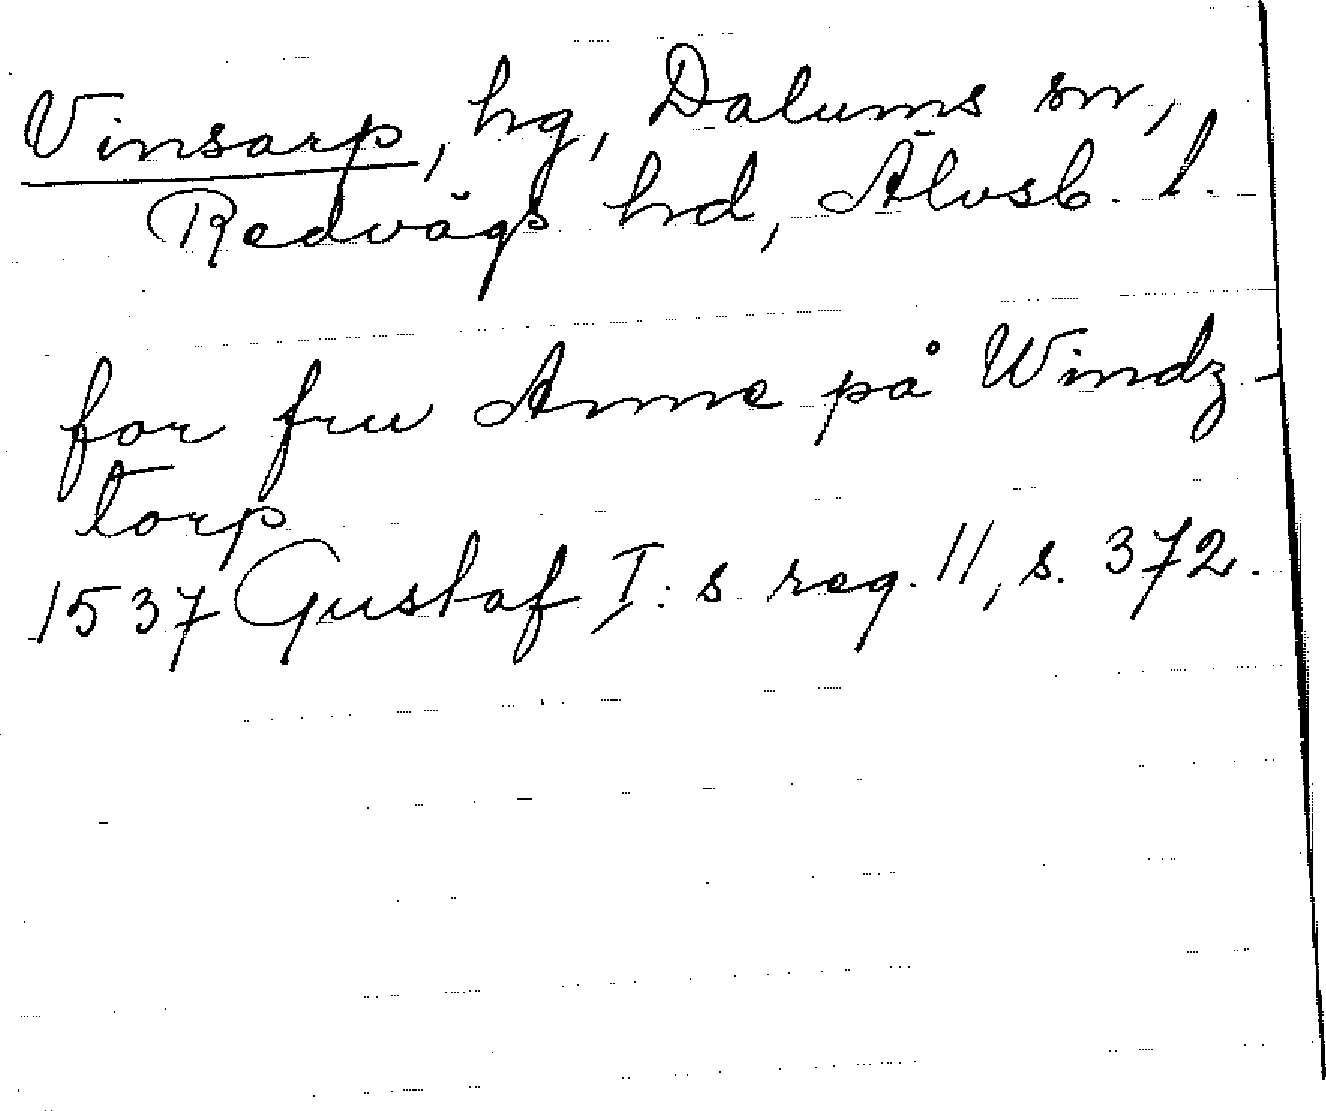 Vinsarp, hg, Dalums sn,
Redvägs hd, Älvsb. l.
for fru Anne på Windz-
torp
1537 Gustaf I:s reg. 11, s. 372.